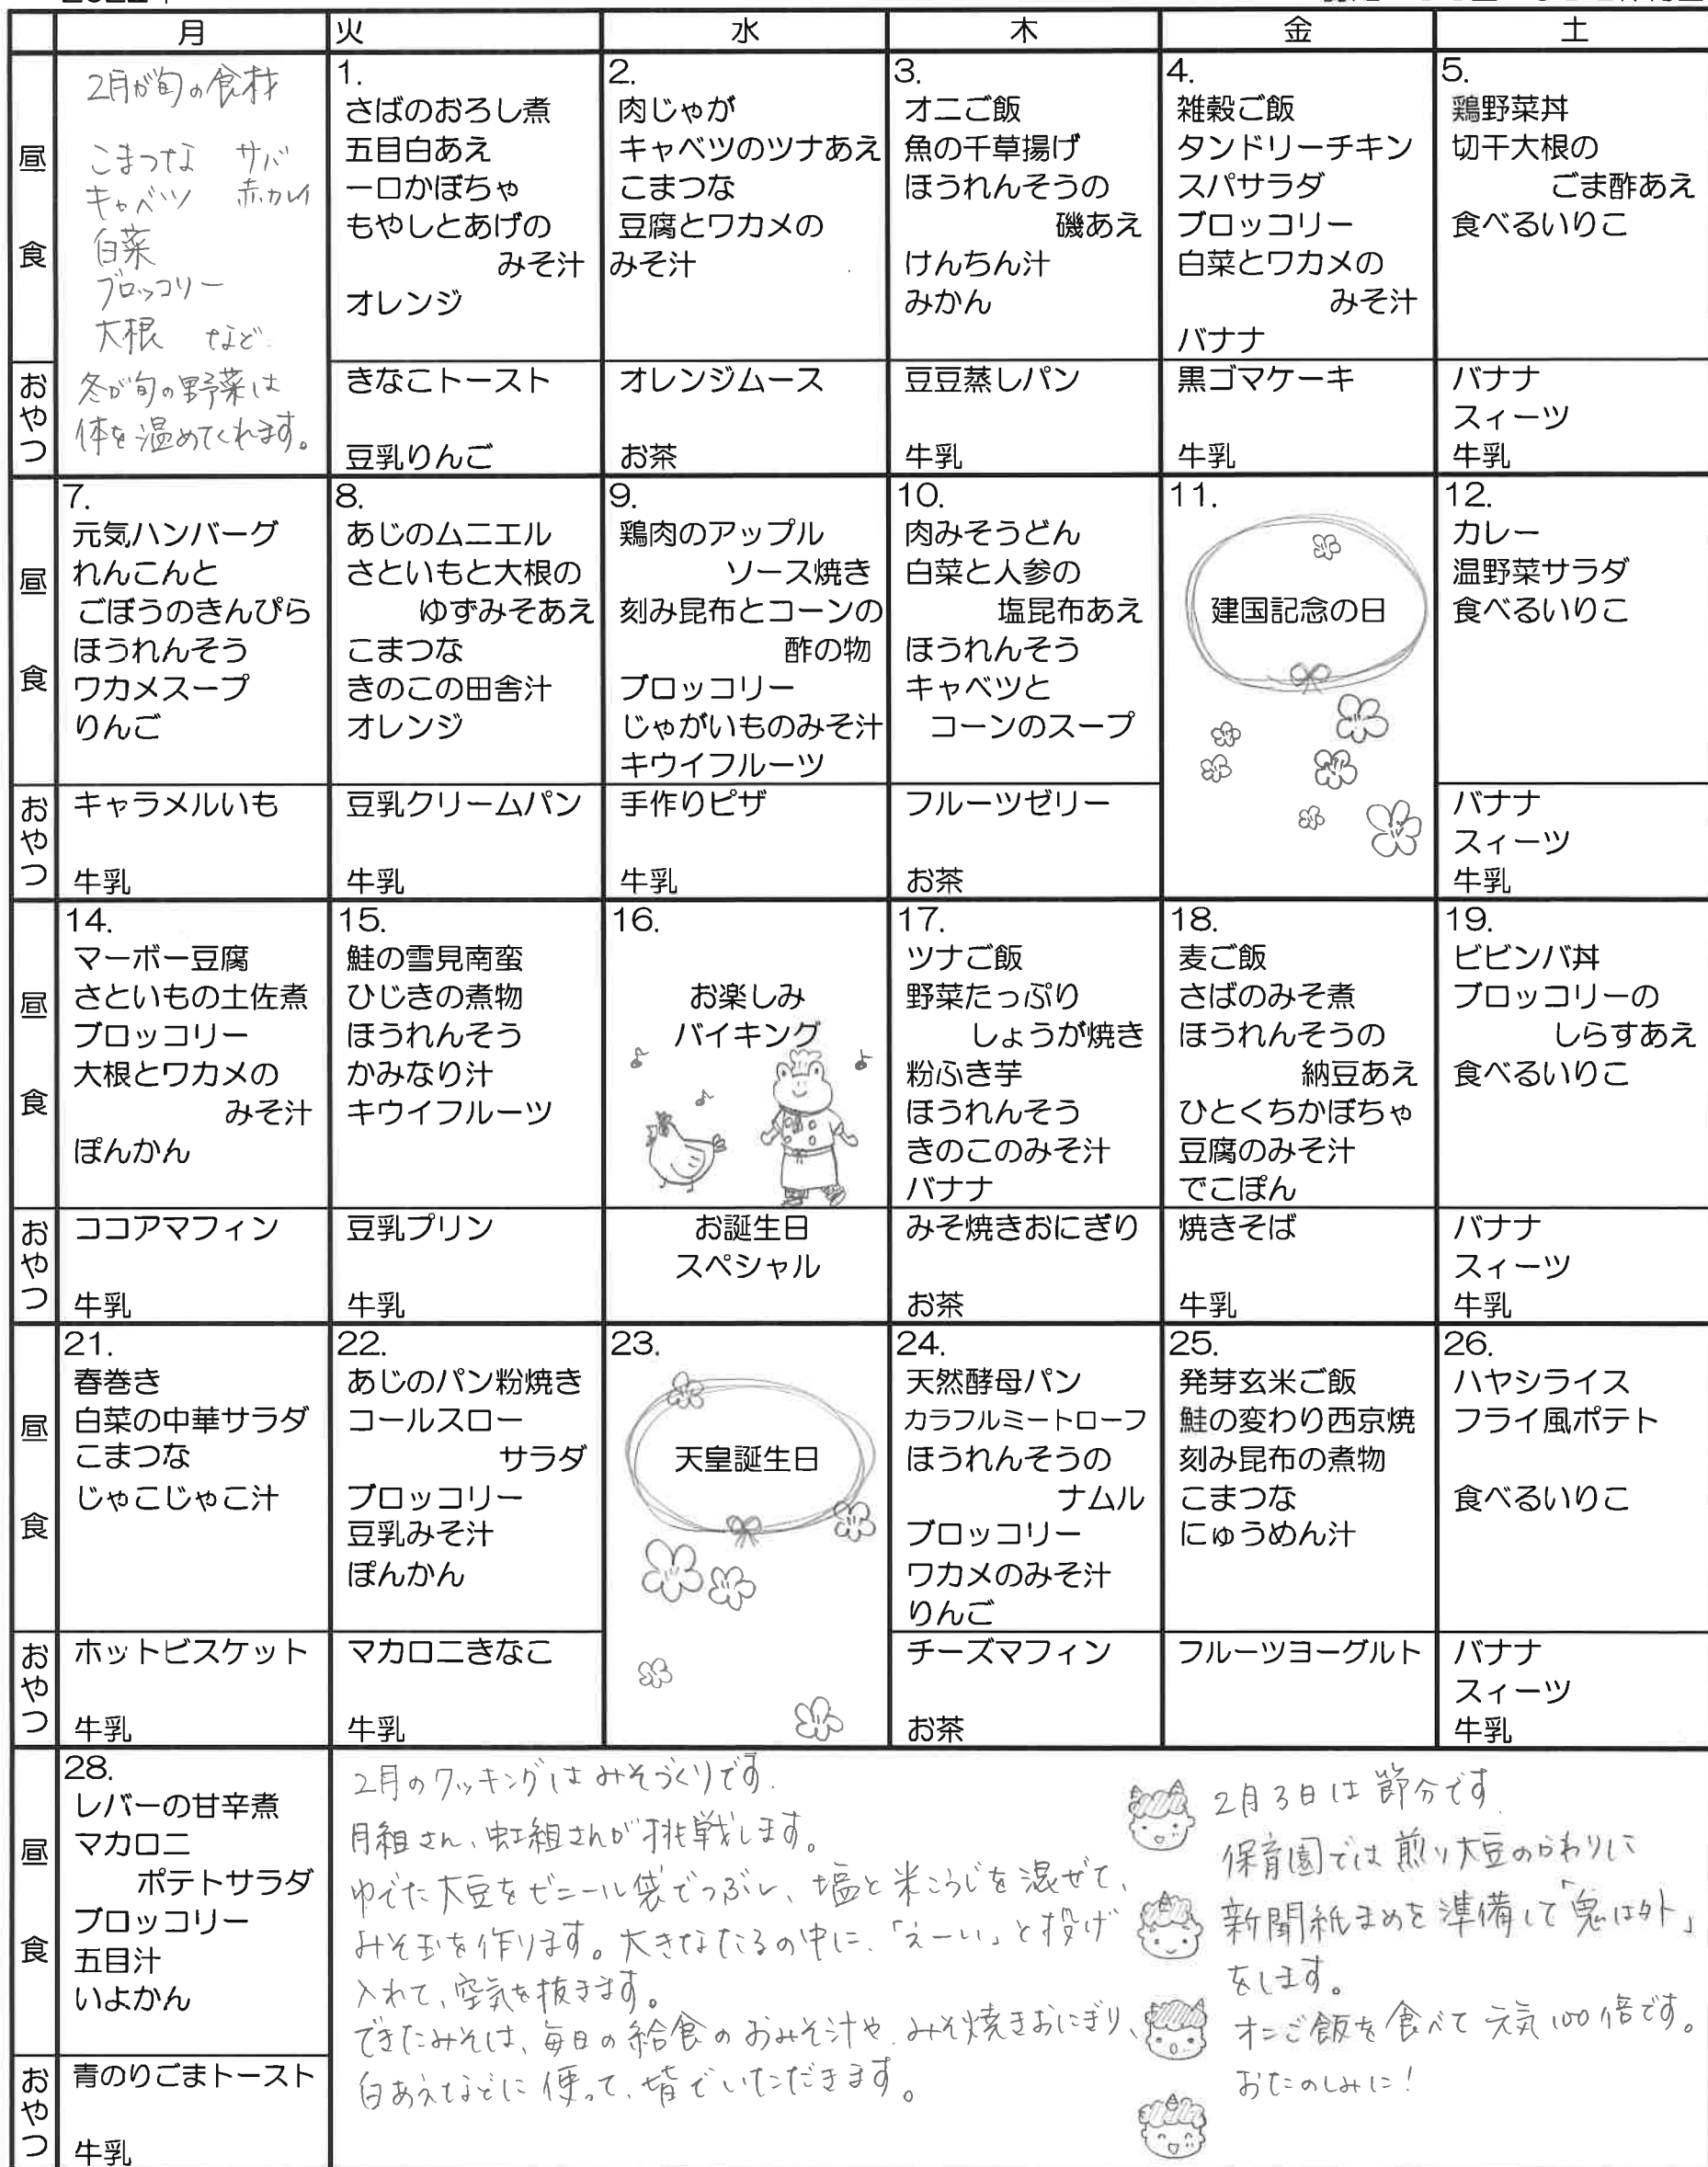 月 火 水 木 金 土
昼食
2月が旬の食材
こまつな サバ
キャベツ 赤カレイ
白菜
ブロッコリー
大根 など
冬が旬の野菜は
体を温めてくれます。
1.
さばのおろし煮
五目白あえ
一口かぼちゃ
もやしとあげの
みそ汁
オレンジ
2.
肉じゃが
キャベツのツナあえ
こまつな
豆腐とワカメの
みそ汁
3.
オニご飯
魚の千草揚げ
ほうれんそうの
磯あえ
けんちん汁
みかん
4.
雑穀ご飯
タンドリーチキン
スパサラダ
ブロッコリー
白菜とワカメの
みそ汁
バナナ
5.
鶏野菜丼
切干大根の
ごま酢あえ
食べるいりこ
おやつ
きなこトースト
豆乳りんご
オレンジムース
お茶
豆豆蒸しパン
牛乳
黒ゴマケーキ
牛乳
バナナ
スィーツ
牛乳
昼食
7.
元気ハンバーグ
れんこんと
ごぼうのきんぴら
ほうれんそう
ワカメスープ
りんご
8.
あじのムニエル
さといもと大根の
ゆずみそあえ
こまつな
きのこの田舎汁
オレンジ
9.
鶏肉のアップル
ソース焼き
刻み昆布とコーンの
酢の物
ブロッコリー
じゃがいものみそ汁
キウイフルーツ
10.
肉みそうどん
白菜と人参の
塩昆布あえ
ほうれんそう
キャベツと
コーンのスープ
11.
建国記念の日
12.
カレー
温野菜サラダ
食べるいりこ
おやつ
キャラメルいも
牛乳
豆乳クリームパン
牛乳
手作りピザ
牛乳
フルーツゼリー
お茶
バナナ
スィーツ
牛乳
昼食
14.
マーボー豆腐
さといもの土佐煮
ブロッコリー
大根とワカメの
みそ汁
ぽんかん
15.
鮭の雪見南蛮
ひじきの煮物
ほうれんそう
かみなり汁
キウイフルーツ
16.
お楽しみ
バイキング
17.
ツナご飯
野菜たっぷり
しょうが焼き
粉ふき芋
ほうれんそう
きのこのみそ汁
バナナ
18.
麦ご飯
さばのみそ煮
ほうれんそうの
納豆あえ
ひとくちかぼちゃ
豆腐のみそ汁
でこぽん
19.
ビビンバ丼
ブロッコリーの
しらすあえ
食べるいりこ
おやつ
ココアマフィン
牛乳
豆乳プリン
牛乳
お誕生日
スペシャル
みそ焼きおにぎり
お茶
焼きそば
牛乳
バナナ
スィーツ
牛乳
昼食
21.
春巻き
白菜の中華サラダ
こまつな
じゃこじゃこ汁
22.
あじのパン粉焼き
コールスロー
サラダ
ブロッコリー
豆乳みそ汁
ぽんかん
23.
天皇誕生日
24.
天然酵母パン
カラフルミートローフ
ほうれんそうの
ナムル
ブロッコリー
ワカメのみそ汁
りんご
25.
発芽玄米ご飯
鮭の変わり西京焼
刻み昆布の煮物
こまつな
にゅうめん汁
26.
ハヤシライス
フライ風ポテト
食べるいりこ
おやつ
ホットビスケット
牛乳
マカロニきなこ
牛乳
チーズマフィン
お茶
フルーツヨーグルト
バナナ
スィーツ
牛乳
昼食
28.
レバーの甘辛煮
マカロニ
ポテトサラダ
ブロッコリー
五目汁
いよかん
おやつ
青のりごまトースト
牛乳
2月のクッキングはみそづくりです.
月組さん、虹組さんが挑戦します。
ゆでた大豆をビニール袋でつぶし、塩と米こうじを混ぜて、
みそ玉を作ります。大きなたるの中に、「えーい」と投げ
入れて、空気を抜きます。
できたみそは、毎日の給食のおみそ汁や、みそ焼きおにぎり、
白あえなどに使って、皆でいただきます。
2月3日は節分です.
保育園では煎り大豆のかわりに
新聞紙まめを準備して「鬼は外」
をします。
オニご飯を食べて元気100倍です。
おたのしみに!